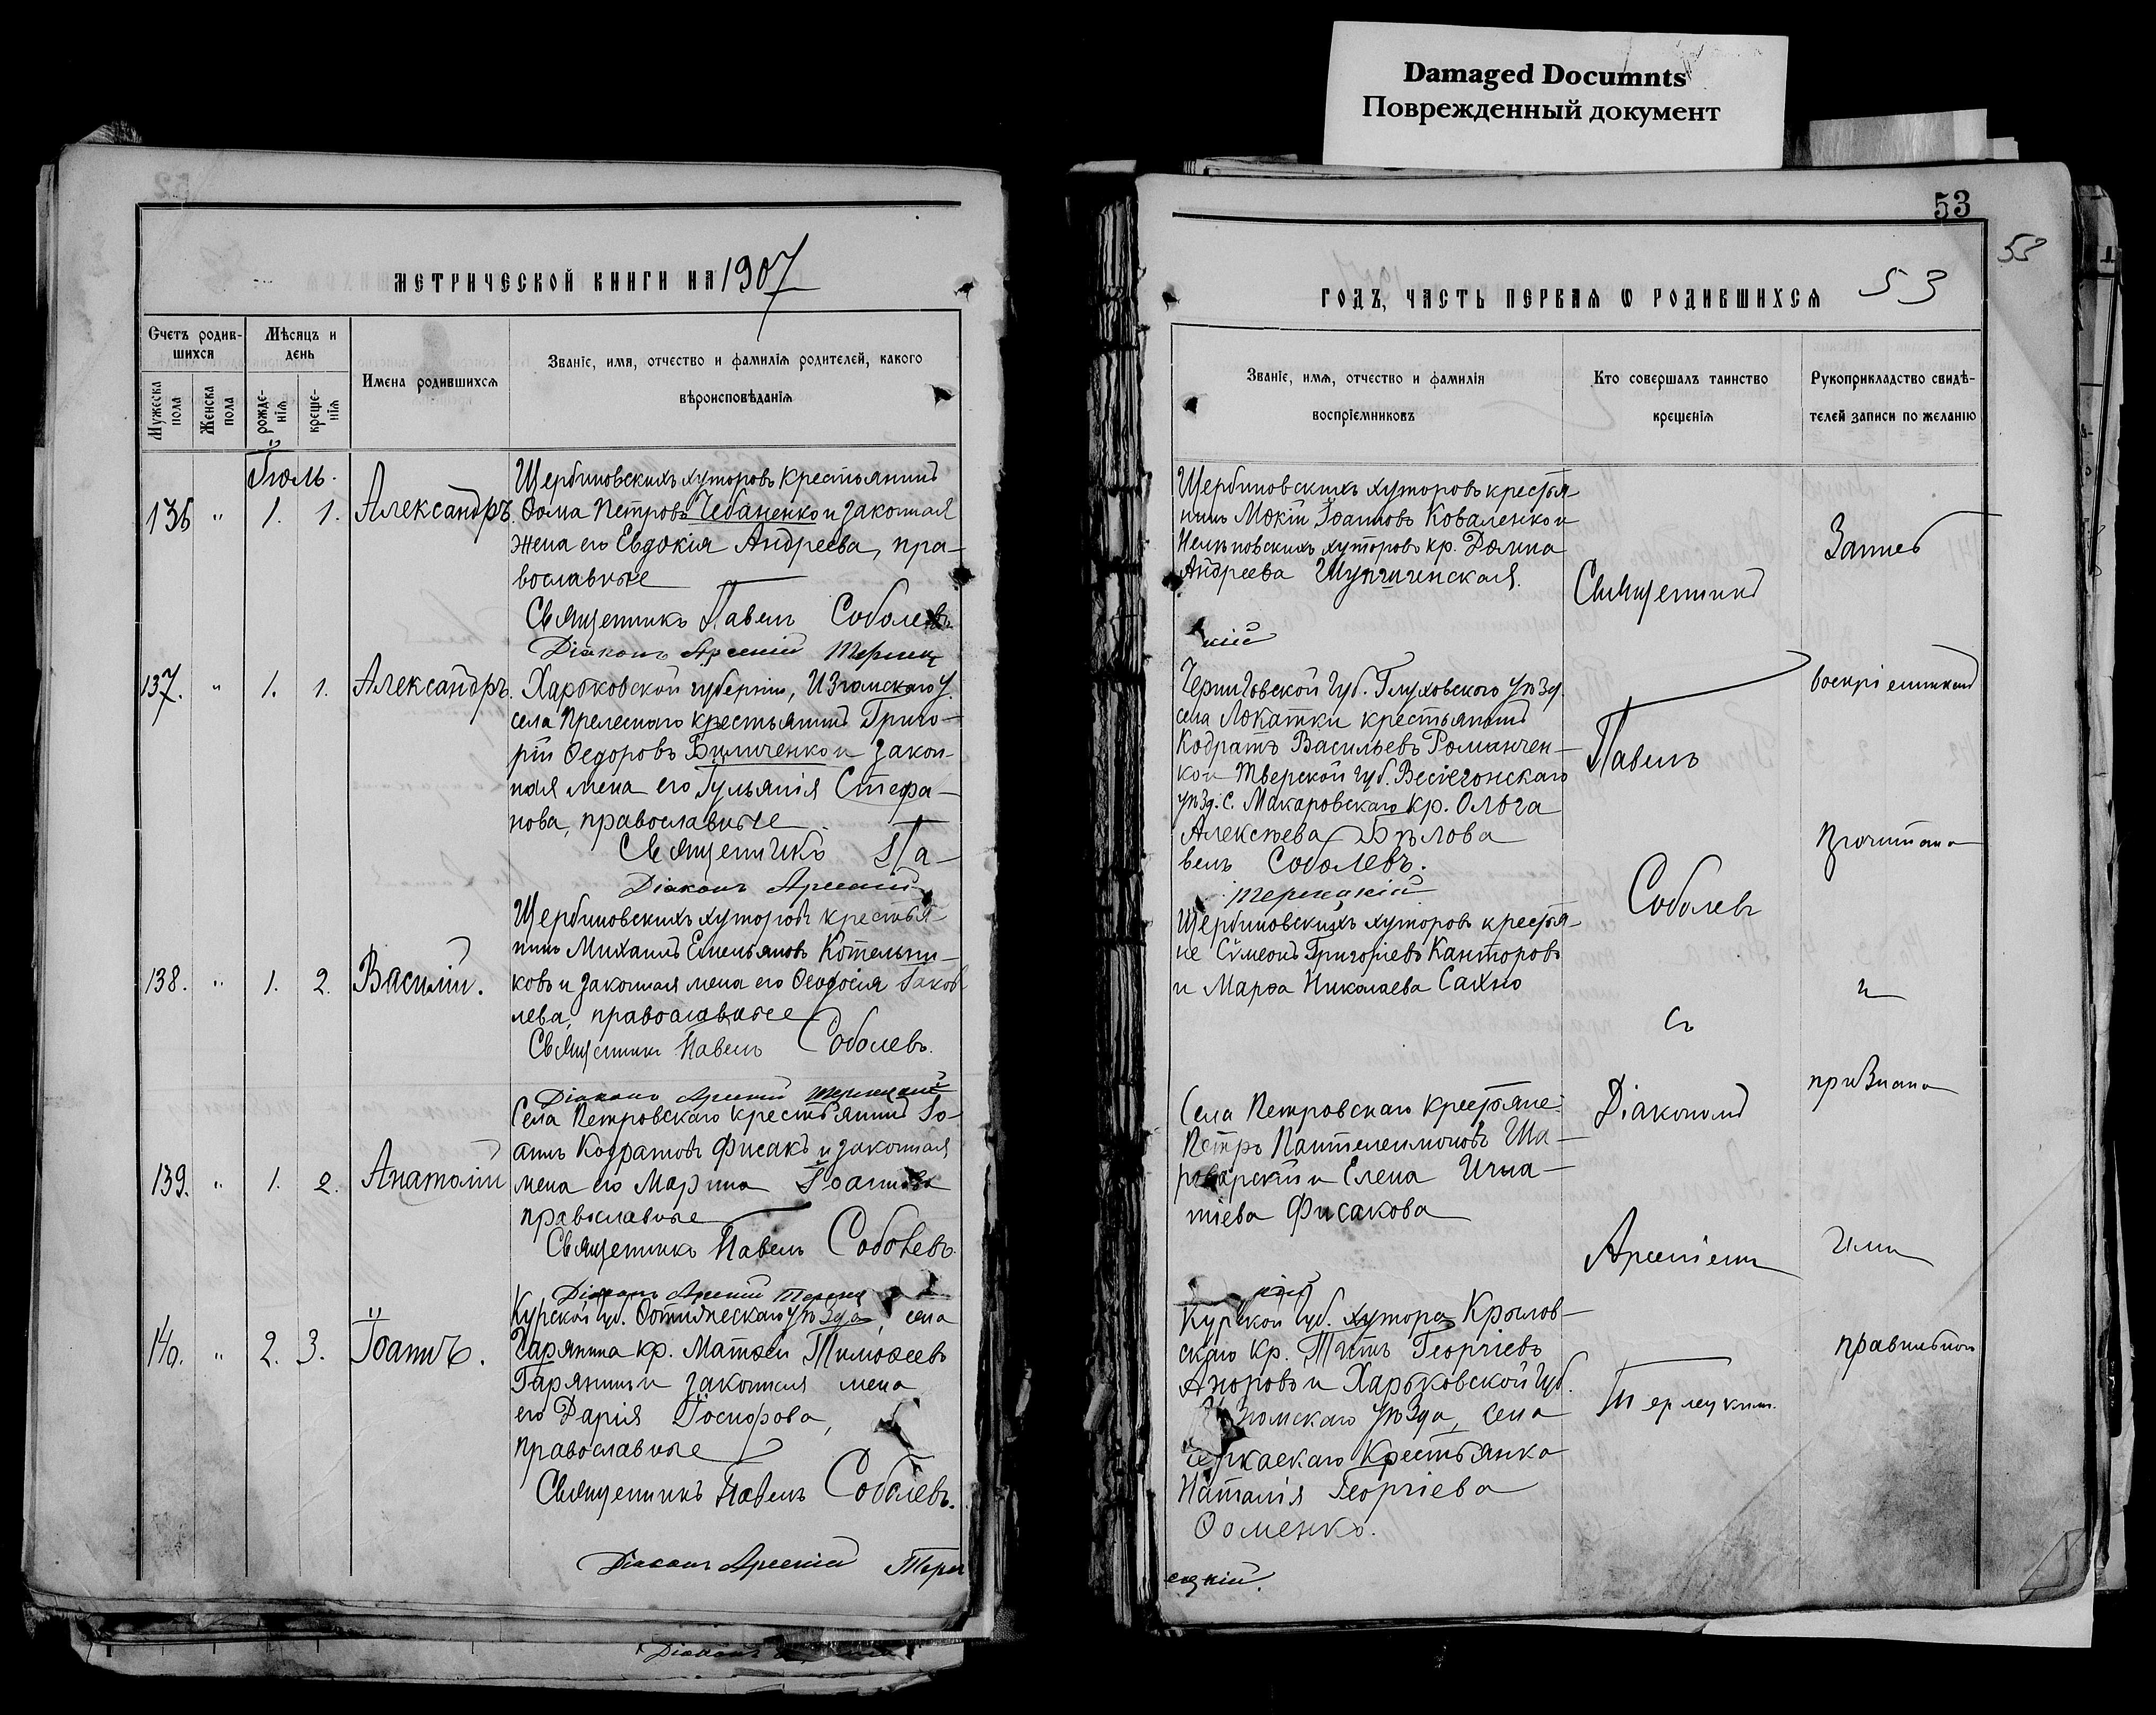 Damaged Documnts
Поврежденный документ
МЕТРИЧЕСКОЙ КНИГИ НА 1907
Счетъ родив-
шихся
Мѣсяцъ и
день
Мужеска
пола
Женска
пола
рожде-
нія
креще-
нія
Имена родившихся
Званіе, имя, отчество и фамилія родителей, какого
вѣроисповѣданія
Іюль.
136 " 1. 1. Александръ.
Щербиновскихъ хуторовъ крестьянинъ
Ѳома Петровъ Чебаненко и законная
жена его Евдокія Андреева, пра-
вославные
Священникъ Павелъ Соболевъ
Діаконъ Арсеній Терлец
137. " 1. 1. Александръ.
Харьковской губерніи, Изюмскаго у.
села Прелеснаго крестьянинъ Григо-
рій Ѳедоровъ Биличенко и закон-
ная жена его Іульянія Стефа-
нова, православные
Священникъ Па-
Діаконъ Арсеній
138. " 1. 2. Василій.
Щербиновскихъ хуторовъ крестья-
нинъ Михаилъ Емельяновъ Котельни-
ковъ и законная жена его Ѳеодосія Іаков
лева, православные
Священникъ Павелъ Соболевъ.
Діаконъ Арсеній Терлецкій
139. " 1. 2. Анатолій
Села Петровскаго крестьянинъ Іо-
аннъ Кодратовъ Фисакъ и законная
жена его Марина Іоаннова
православные
Священникъ Павелъ Соболевъ.
Діаконъ Арсеній
140. " 2. 3. Іоаннъ.
Курской губ. уѣзда, села
кр. Матѳей Тимоѳеевъ
Гарянинъ и законная жена
его Дарія
православные
Священникъ Павелъ Соболевъ.
Діаконъ Арсеній Терл
Діаконъ
53
53
ГОДЪ, ЧАСТЬ ПЕРВАЯ Ѡ РОДИВШИХСЯ 53
Званіе, имя, отчество и фамилія
воспріемниковъ
Кто совершалъ таинство
крещенія
Рукоприкладство свидѣ-
телей записи по желанію
Щербиновскихъ хуторовъ крестья-
нинъ Мокій Іоанновъ Коваленко и
Нелѣповскихъ хуторовъ кр. Домна
Андреева
кій
Черниговской губ. Глуховского уѣзд.
села Локатки крестьянинъ
Кодратъ Васильевъ Романчен-
ко и Тверской губ. Весіегонскаго
уѣзд. с. Макаровскаго кр. Ольга
Алексѣева Бѣлова
велъ Соболевъ.
Терлецкій
Щербиновскихъ хуторовъ крестья-
не Сѵмеонъ Григоріевъ Канторовъ
и Марѳа Николаева Сахно
Села Петровскаго крестьяне:
Петръ Пантелеимоновъ Ша-
роварскій и Елена Игна-
тіева Фисакова
кій
Курской губ. хутора Крылов-
скаго кр. Титъ Георгіевъ
и Харьковской губ.
Изюмскаго уѣзда, села
Черкаскаго крестьянка
Наталія Георгіева
Ѳоменко.
ецкій.
Священникъ
Павелъ
Соболевъ
съ
Діакономъ
Арсеніемъ
Терлецкимъ.
Запись
воспріемниками
прочитана
и
признана
ими
правильною